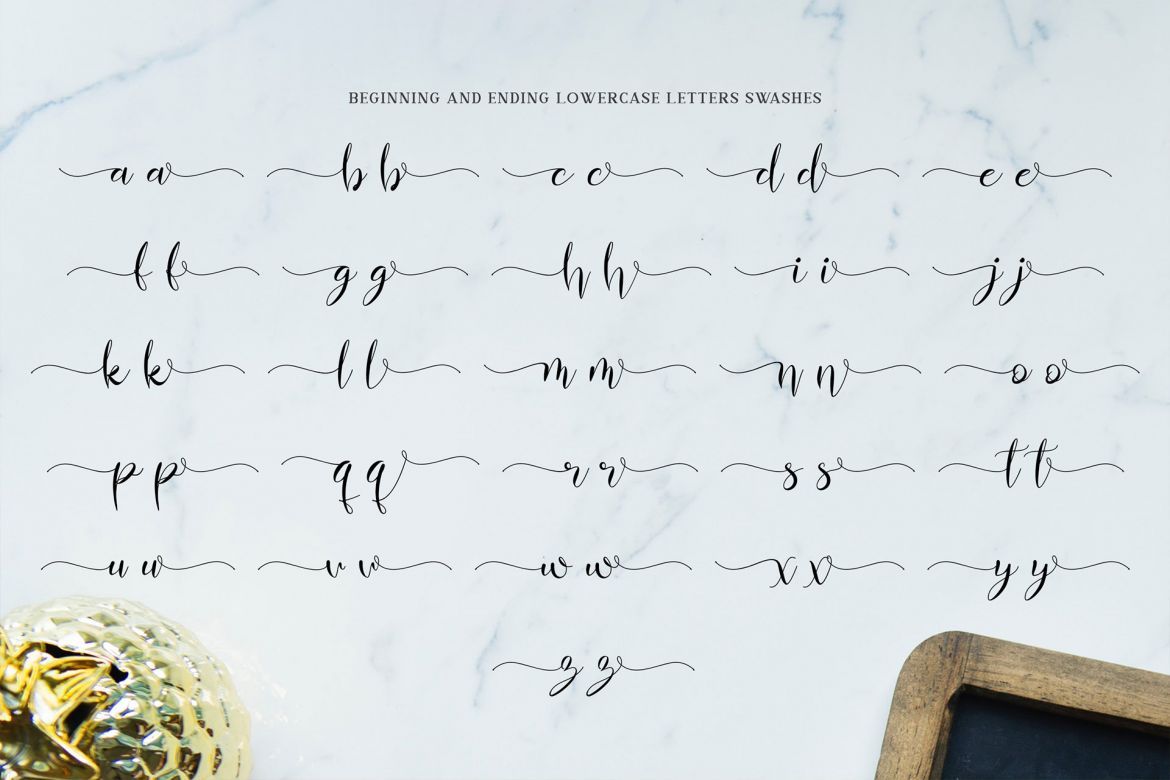 BEGINNING AND ENDING LOWERCASE LETTERS SWASHES
a a b b c c d d e e
f f g g h h i i j j
k k l l m m n n o o
p p q q r r s s t t
u u v v w w x x y y
z z